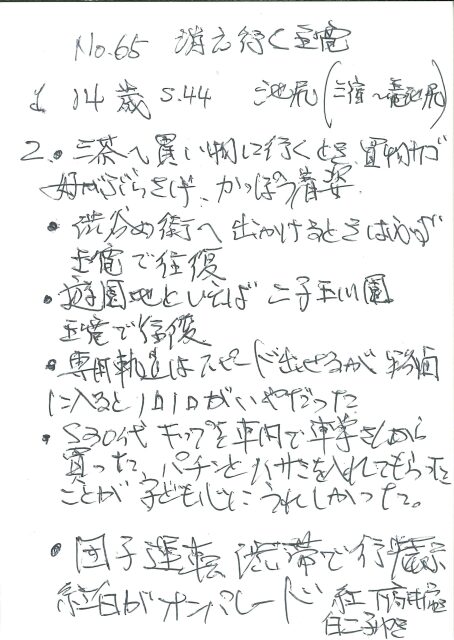 No.65 消え行く玉電
1 14歳 S.44 池尻(三宿〜池尻)
2.・三茶へ買い物に行くとき、買物カゴ
ぶらさげ、かっぽう着姿
・渋谷の街へ出かけるときは必ず
玉電で往復
・遊園地といえば二子玉川園
玉電で往復
・専用軌道はスピード出せるが路面
に入るとノロノロがいやだった
・S30代 キップを車内で車掌さんから
買った、パチンとハサミを入れてもらった
ことが子ども心にうれしかった。
・団子運転 渋滞で行先表示
紅白がオンパレード 紅 下高井戸
白 二子